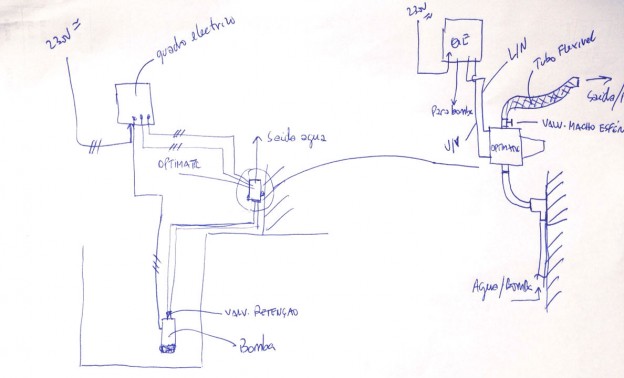 230V
quadro electrico
Saída agua
OPTIMATE
VALV. RETENÇÃO
Bomba
230V
QE
L/N
Tubo Flexivel
Saída/
Para bomba
VALV. MACHO ESFÉR
OPTIMATE
Agua/Bomba